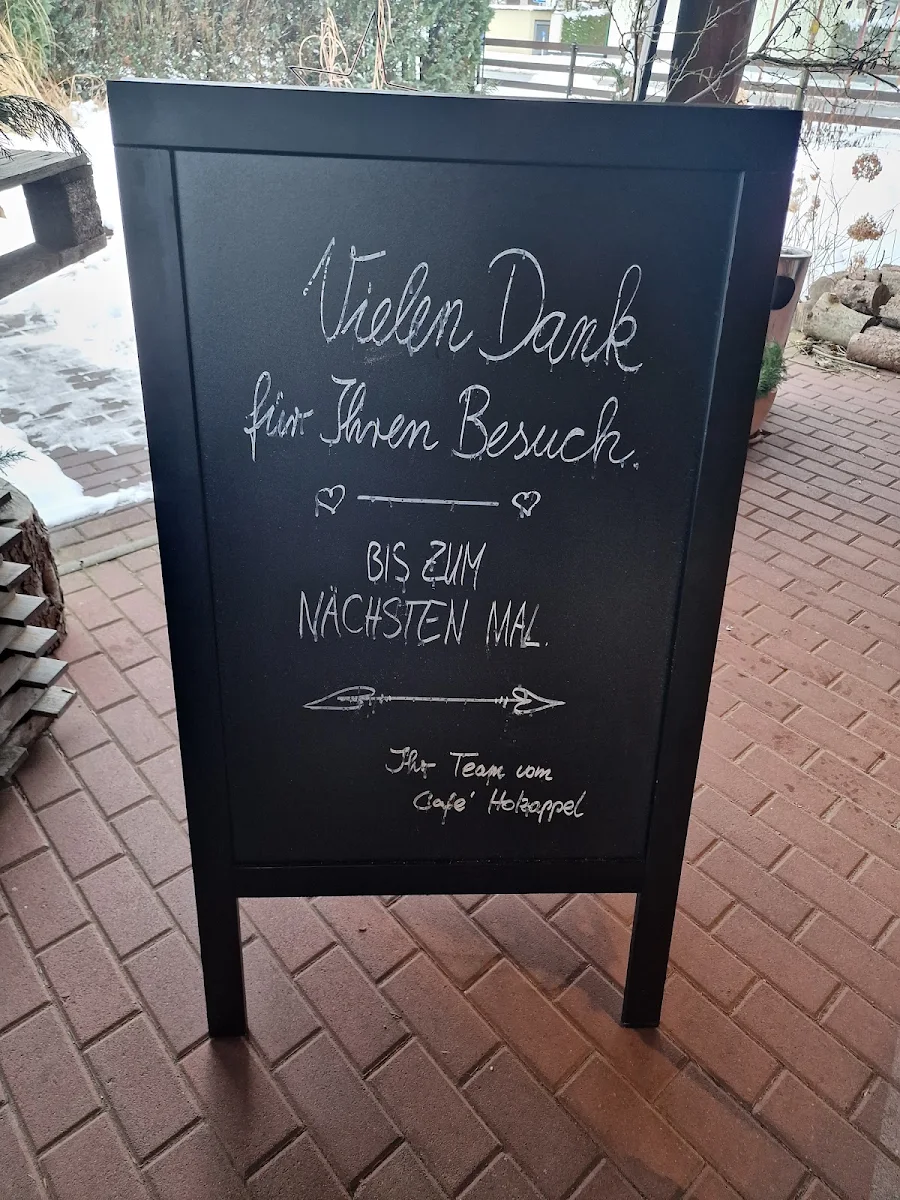 Vielen Dank
für Ihren Besuch.
BIS ZUM
NÄCHSTEN MAL.
Ihr Team vom
Café Holzappel